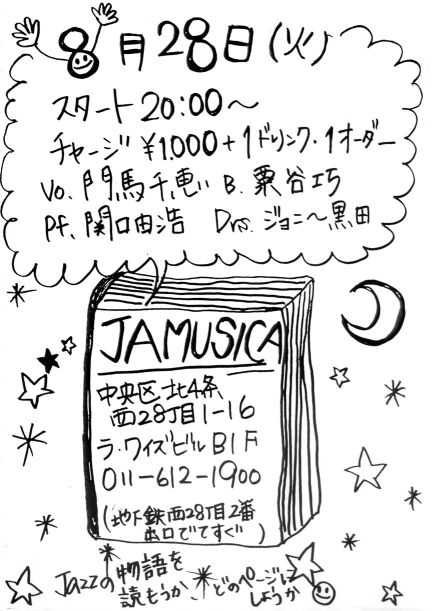 8月28日(火)
スタート20:00〜
チャージ ¥1.000+1ドリンク・1オーダー
Vo. 門馬千恵 B. 粟谷巧
Pf. 関口由浩 Drs. ジョニー黒田
JAMUSICA
中央区北4条
西28丁目1-16
ラ・ワイズビルB1F
011-612-1900
(地下鉄西28丁目2番
出口でてすぐ)
Jazzの物語を
読もうか、どのページに
しようか